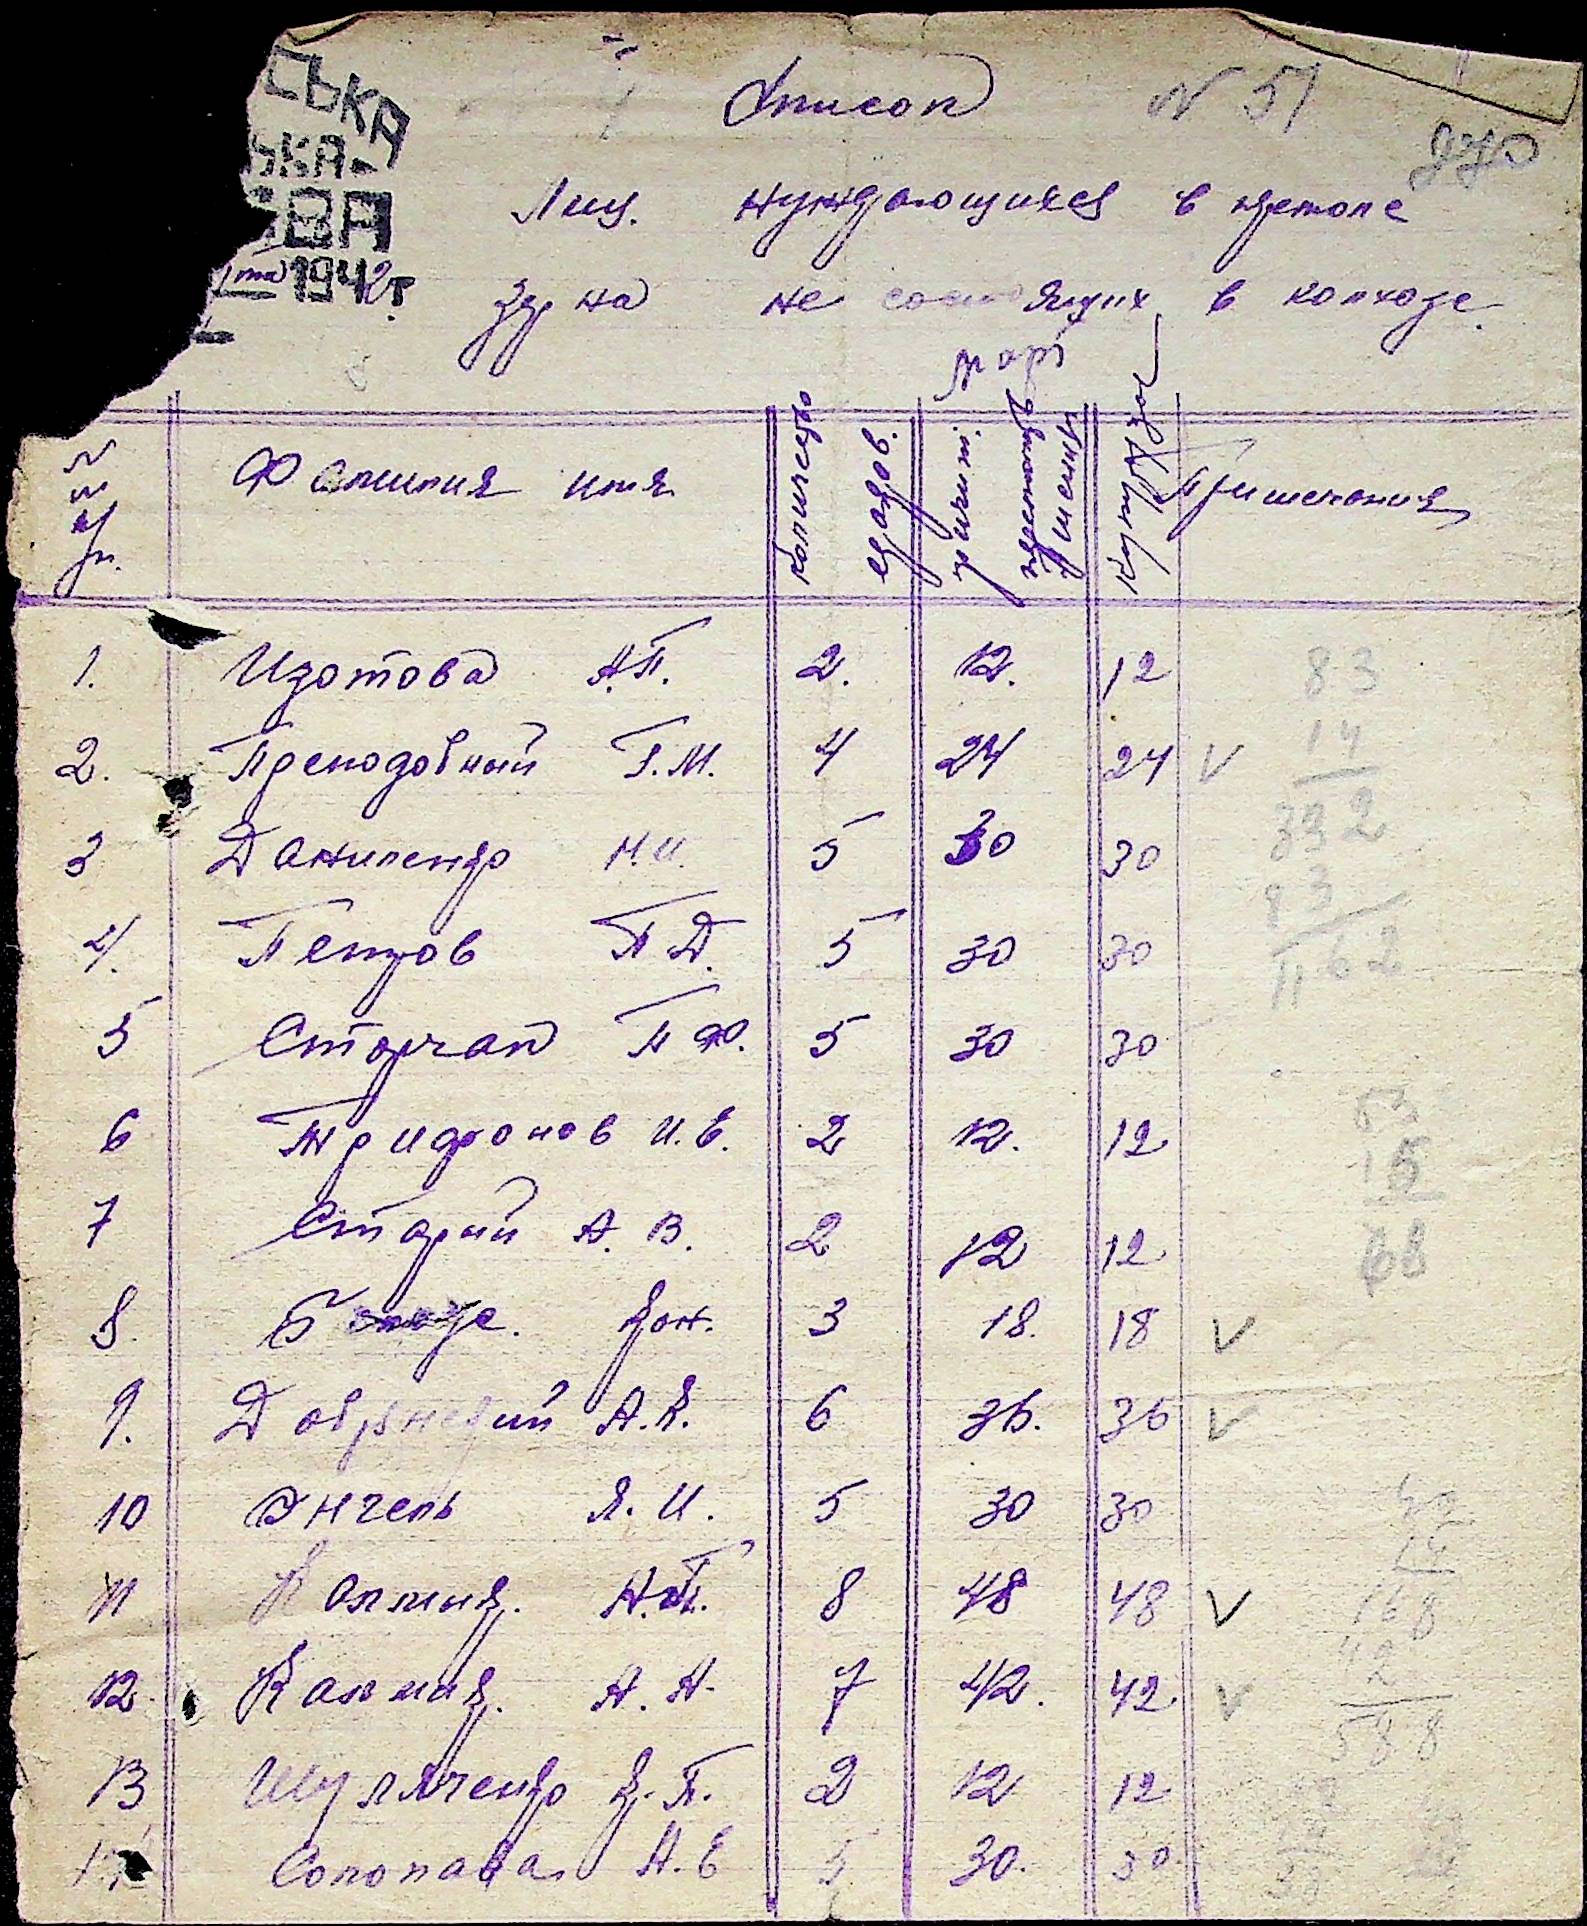 СЬКА
ЬКА-
ВА
1942 г
Список
N 51
Лиц. нуждающихся в
зерна не состоящих в колхозе.
март
Фамилия имя
количество
едоков.
кукурузы
Примечания
1. Изотова А.П. 2. 12. 12
2. Преподобний Г.М. 4 24 24 V
3 Даниленко Н.И. 5 30 30
4. Петров П.Д. 5 30 30
5 Сторчак П Ф. 5 30 30
6 Тридонов И.Е. 2 12. 12
7 Старий А. В. 2 12 12
8. 3 18. 18 V
9. А.К. 6 36. 36 V
10 Энгель Я. И. 5 30 30
11 Калмик. А.П. 8 48 48 V
12. Калмик. А. А. 7 42. 42. V
13 Шулляченко К. П. 2 12 12
14 Солопава А. Е 5 30. 30.
83
14
332
83
1162
53
15
68
168
42
588